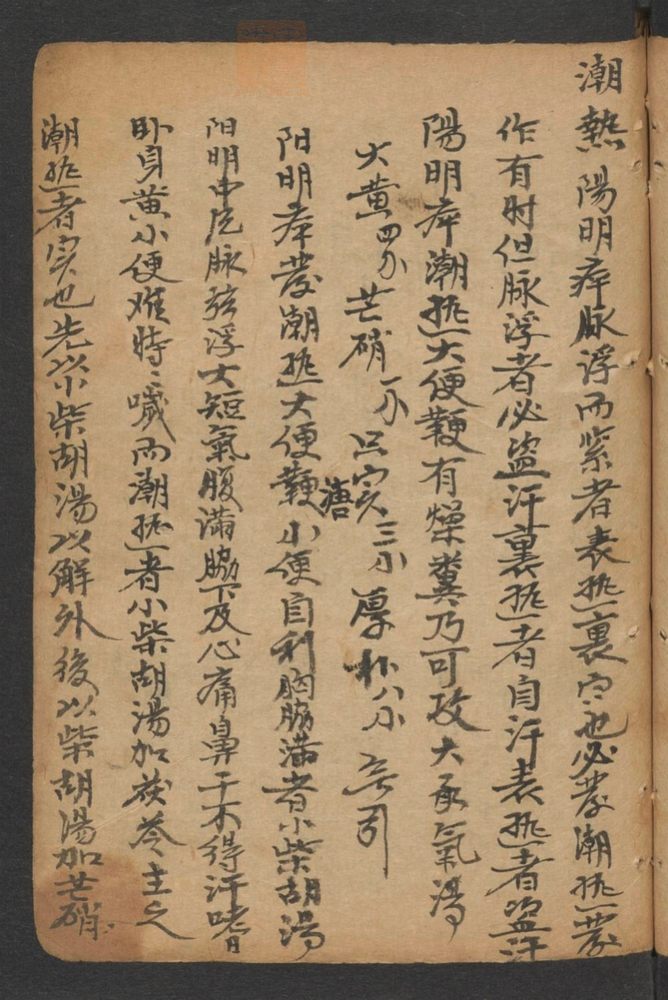 潮熱 陽明病脉浮而紧者表热裏实也必發潮热發
作有时但脉浮者必盗汗裏热者自汗表热者盗汗
陽明病潮热大便鞕有燥糞乃可攻大承氣湯
大黄四 芒硝 只实三 厚朴八
阳明病發潮热大便鞕溏小便自利胸脇满者小柴胡湯
阳明中 脉弦浮大短氣腹满脇下及心痛鼻干不得汗嗜
卧身黄小便难時〻噦而潮热者小柴胡湯加茯苓主之
潮热者实也先以小柴胡湯以解外後以柴胡湯加芒硝